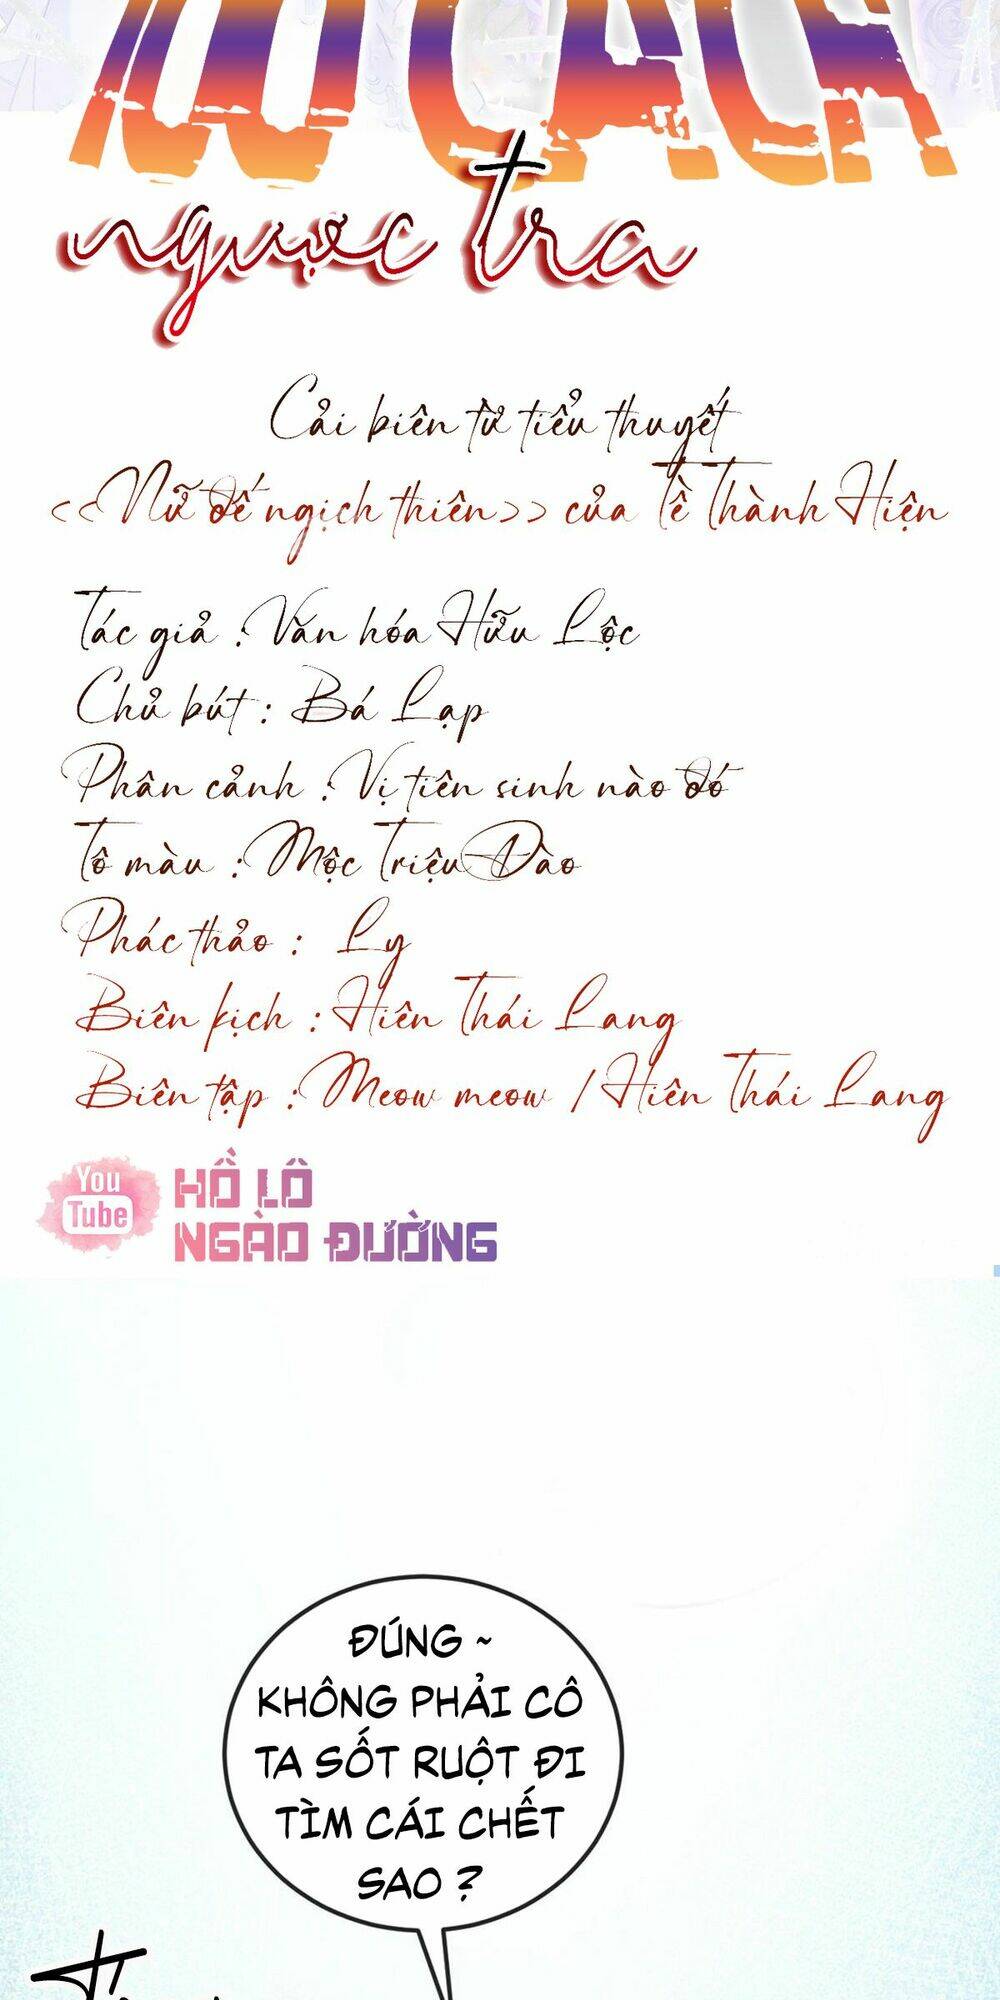 100 CÁCH
ngược tra
Cải biên từ tiểu thuyết
<<Nữ đế ngịch thiên>> của Tề Thành Hiện
Tác giả : Văn hóa Hữu Lộc
Chủ bút : Bá Lạp
Phân cảnh : Vị tiên sinh nào đó
Tô màu : Mộc Triệu Đào
Phác thảo : Ly
Biên kịch : Hiên Thái Lang
Biên tập : Meow meow / Hiên Thái Lang
You
Tube
HỒ LÔ
NGÀO ĐƯỜNG
ĐÚNG ~
KHÔNG PHẢI CÔ
TA SỐT RUỘT ĐI
TÌM CÁI CHẾT
SAO ?